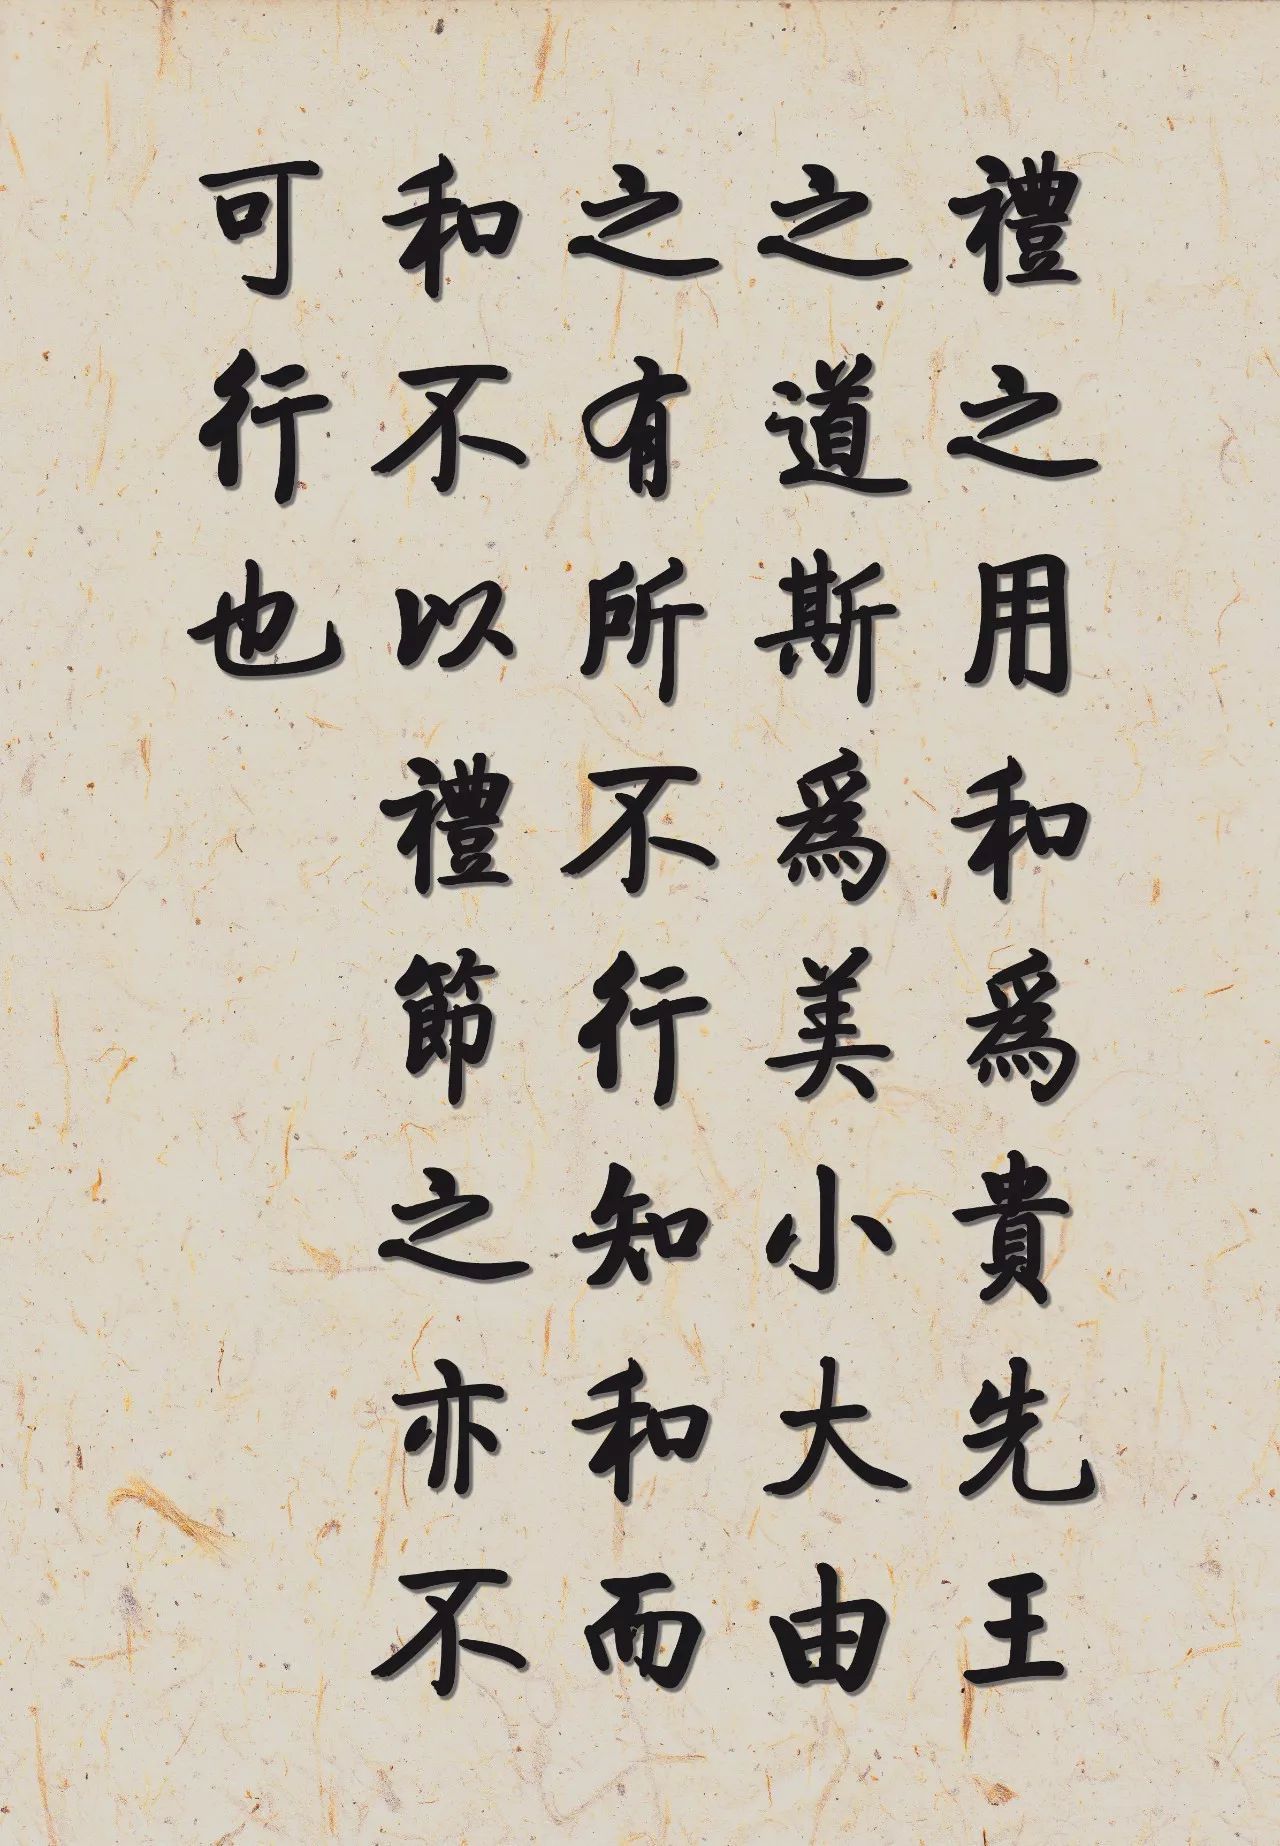 禮之用和爲貴先王
之道斯爲美小大由
之有所不行知和而
和不以禮節之亦不
可行也